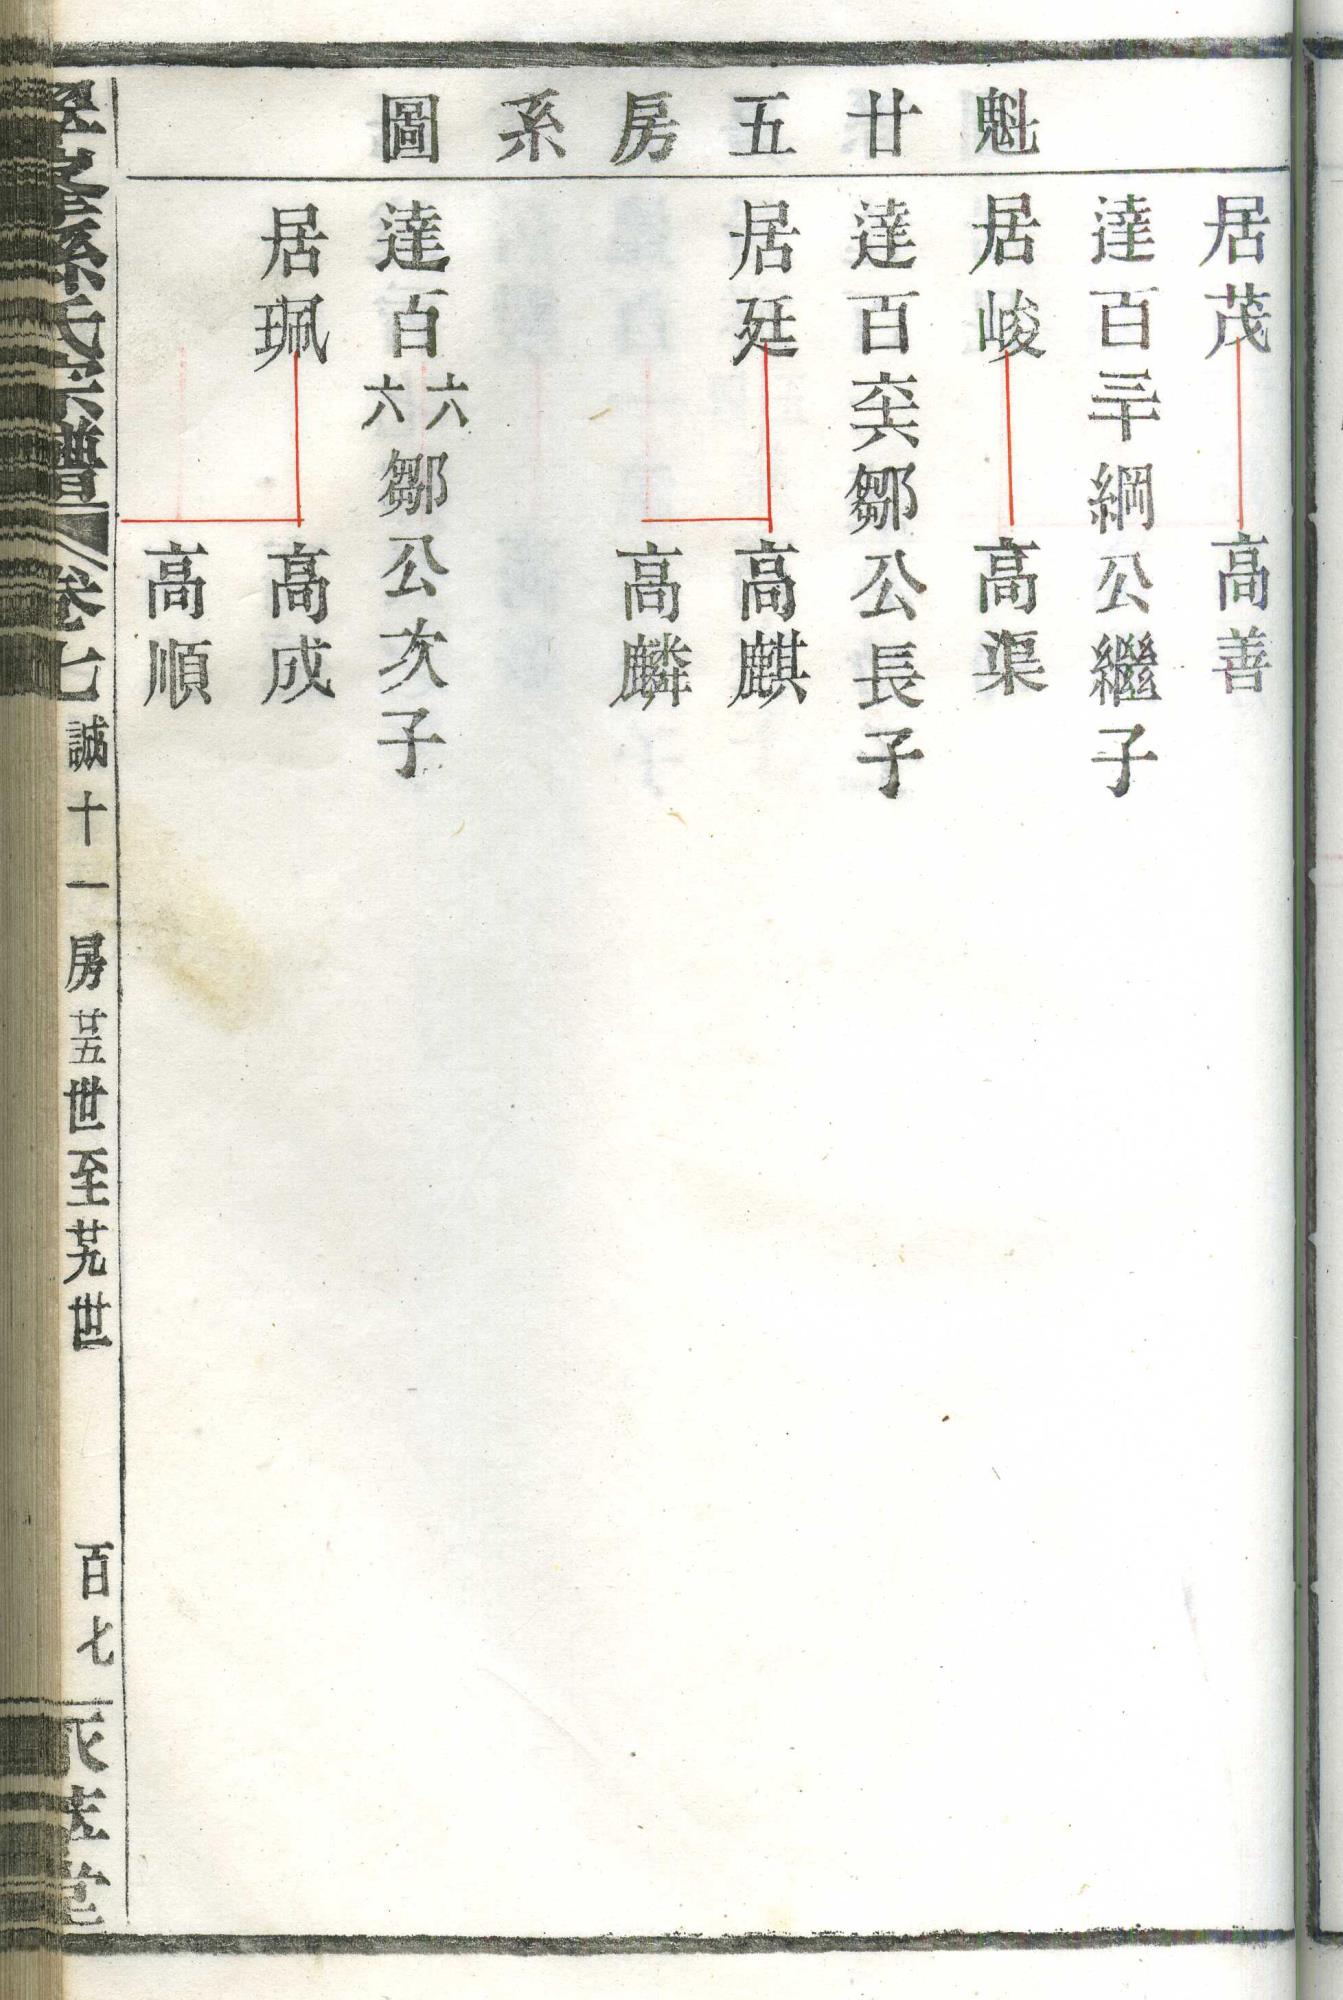 魁廿五房系圖
居茂
高善
達百三十綱公繼子
居峻
高渠
達百六六鄒公長子
居廷
高麒
高麟
達百六六鄒公次子
居珮
高成
高順
孫氏宗譜
卷七
誠十一房廿五世至廿九世
百七
堂